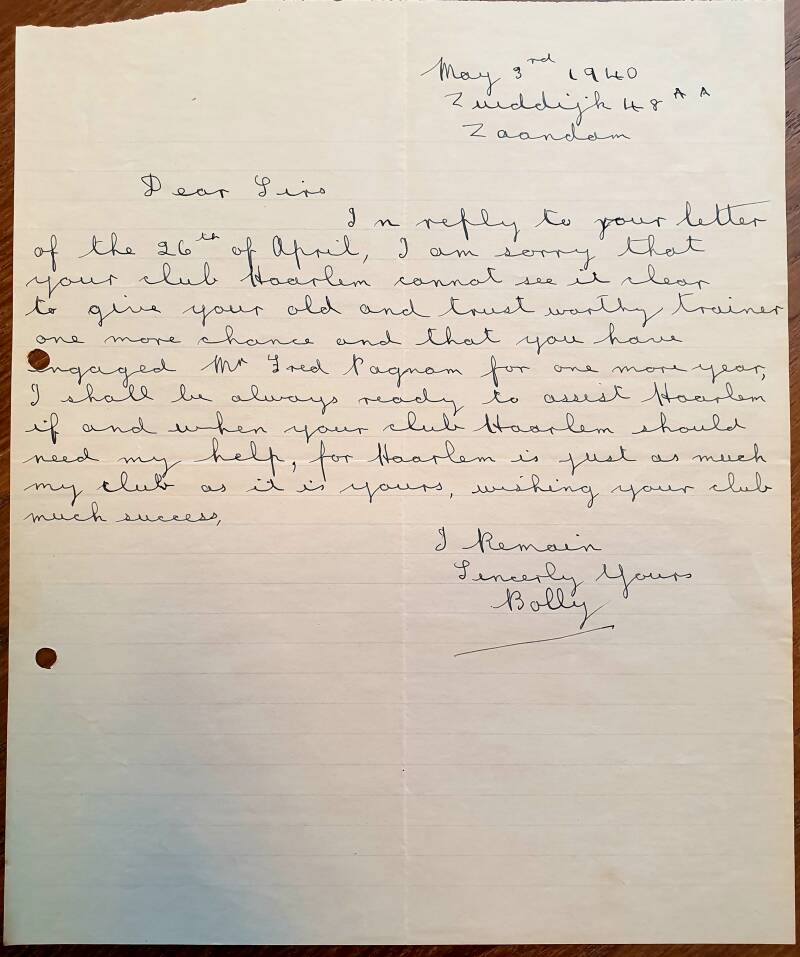 May 3rd 1940
Zuiddijk 48 A A
Zaandam
Dear Sirs
In reply to your letter
of the 26th of April, I am sorry that
your club Haarlem cannot see it clear
to give your old and trust worthy trainer
one more chance and that you have
engaged Mr Fred Pagnam for one more year,
I shall be always ready to assist Haarlem
if and when your club Haarlem should
need my help, for Haarlem is just as much
my club as it is yours, wishing your club
much success,
I Remain
Sincerly Yours
Bolly